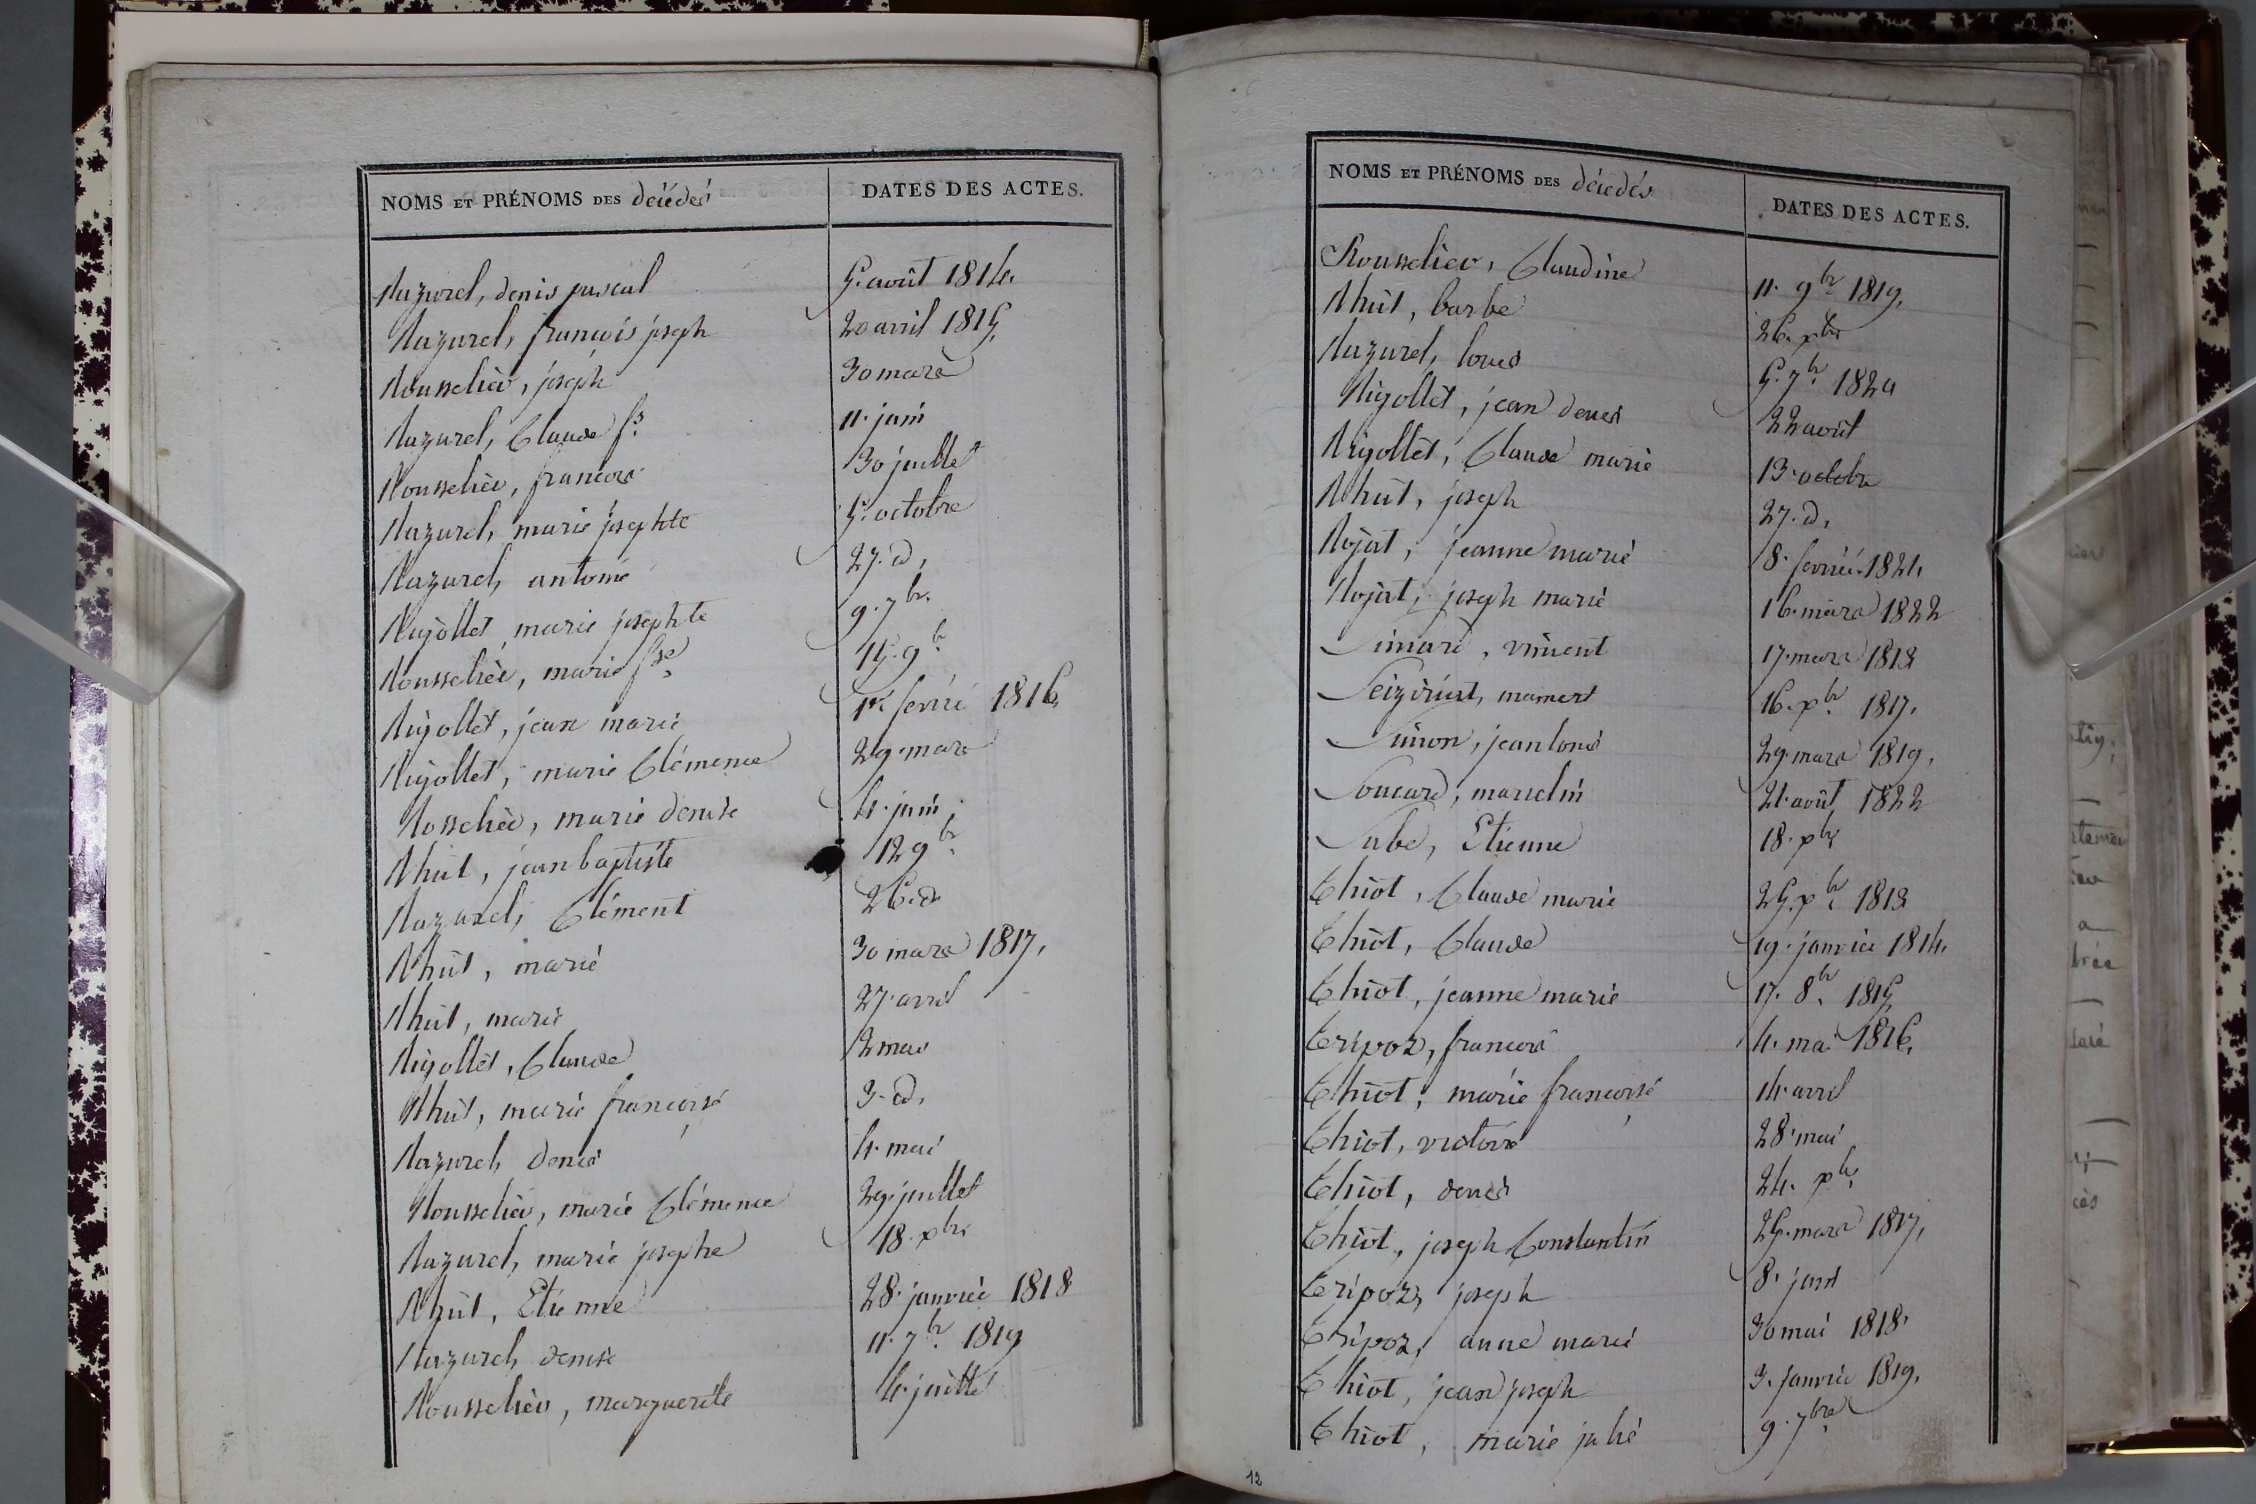 NOMS ET PRÉNOMS DES décédés DATES DES ACTES.
Razurel, denis pascal 5. août 1814.
Razurel, françois joseph 20 avril 1815,
Rousselier, joseph 30 mars
Razurel, Claude f.s 11. juin
Rousselier, francois 30 juillet
Razurel, marie josephte 5. octobre
Razurel, antoine 27. d,
Rigollet marie josephte 9. 7br.
Rousselier, marie f.se 15. 9b.
Rigollet, jean marie 1er. fevrié 1816,
Rigollet, marie Clémence 29. mars
Rosselier, marie denise 4. juin
Rhut, jean baptiste 12 9br.
Razurel, Clément 26. d.
Rhut, marie 30 mars 1817,
Rhut, marie 27. avril
Rigollet, Claude 2 mai
Rhut, marie françoise 3. d,
Razurel, denis 4. mai
Rousselier, marie Clémence 29. juillet
Razurel, marie josephe 18. xbr.
Rhut, Etienne 28. janvier 1818
Razurel, denise 11. 7br. 1819
Rousselier, marguerite 4. juillet
NOMS ET PRÉNOMS DES décédés DATES DES ACTES.
Rousselier, Claudine 11. 9br 1819,
Rhut, barbe 26. xbr.
Razurel, louis 5. 7br. 1820
Rigollet, jean denis 22 août
Rigollet, Claude marie 13. octobre
Rhut, joseph 27. d,
Rojat, jeanne marie 8. fevrié. 1821,
Rojat, joseph marie 16. mars 1822
Simard, vincent 17. mars 1813
mamert 16. xbr. 1817,
Simon, jean louis 29. mars 1819,
Soucard, marcelin 21. août 1822
Sube, Etienne 18. xbr
Thiot, Claude marie 25. xbr. 1813
Thiot, Claude 19. janvier 1814,
Thiot, jeanne marie 17. 8br. 1815,
Tripoz, francois 4. mai 1816,
Thiot, marie françoise 14. avril
Thiot, victoire 28. mai
Thiot, denis 24. xbr.
Thiot, joseph Constantin 25. mars 1817,
Tripoz, joseph 8. juin
Tripoz, anne marie 30 mai 1818.
Thiot, jean joseph 3. janvier 1819,
Thiot, marie julie 9. 7bre
12